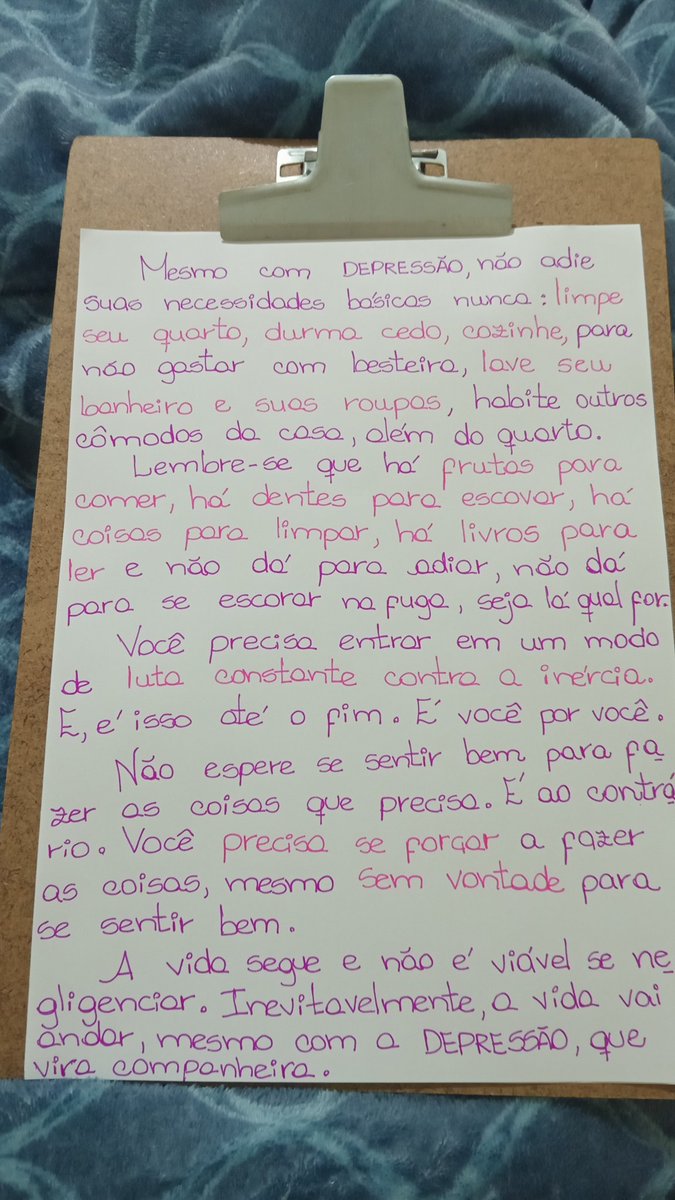 Mesmo com DEPRESSÃO, não adie
suas necessidades básicas nunca: limpe
seu quarto, durma cedo, cozinhe, para
não gastar com besteira, lave seu
banheiro e suas roupas, habite outros
cômodos da casa, além do quarto.
Lembre-se que há frutas para
comer, há dentes para escovar, há
coisas para limpar, há livros para
ler e não dá para adiar, não dá
para se escorar na fuga, seja lá qual for.
Você precisa entrar em um modo
de luta constante contra a inércia.
E, é isso até o fim. É você por você.
Não espere se sentir bem para fa
zer as coisas que precisa. É ao contrá
rio. Você precisa se forçar a fazer
as coisas, mesmo sem vontade para
se sentir bem.
A vida segue e não é viável se ne
gligenciar. Inevitavelmente, a vida vai
andar, mesmo com a DEPRESSÃO, que
vira companheira.